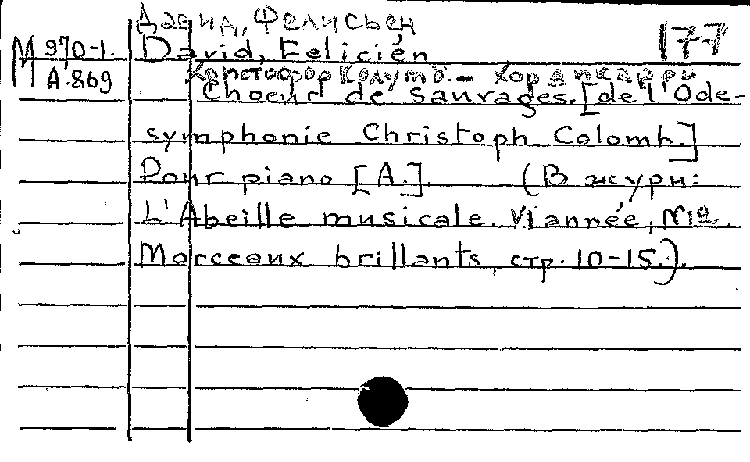 Давид, Фелисьен
M 970-1. David, Felicién 177
A.869 Христофор Колумб. - Хор дикарей
Choeur de sauvages. [de l'Ode-
symphonie Christoph Colomb.]
Pour piano [A.] (В журн:
L'Abeille musicale. VI année, №12.
Morceaux brillants, стр. 10-15.).